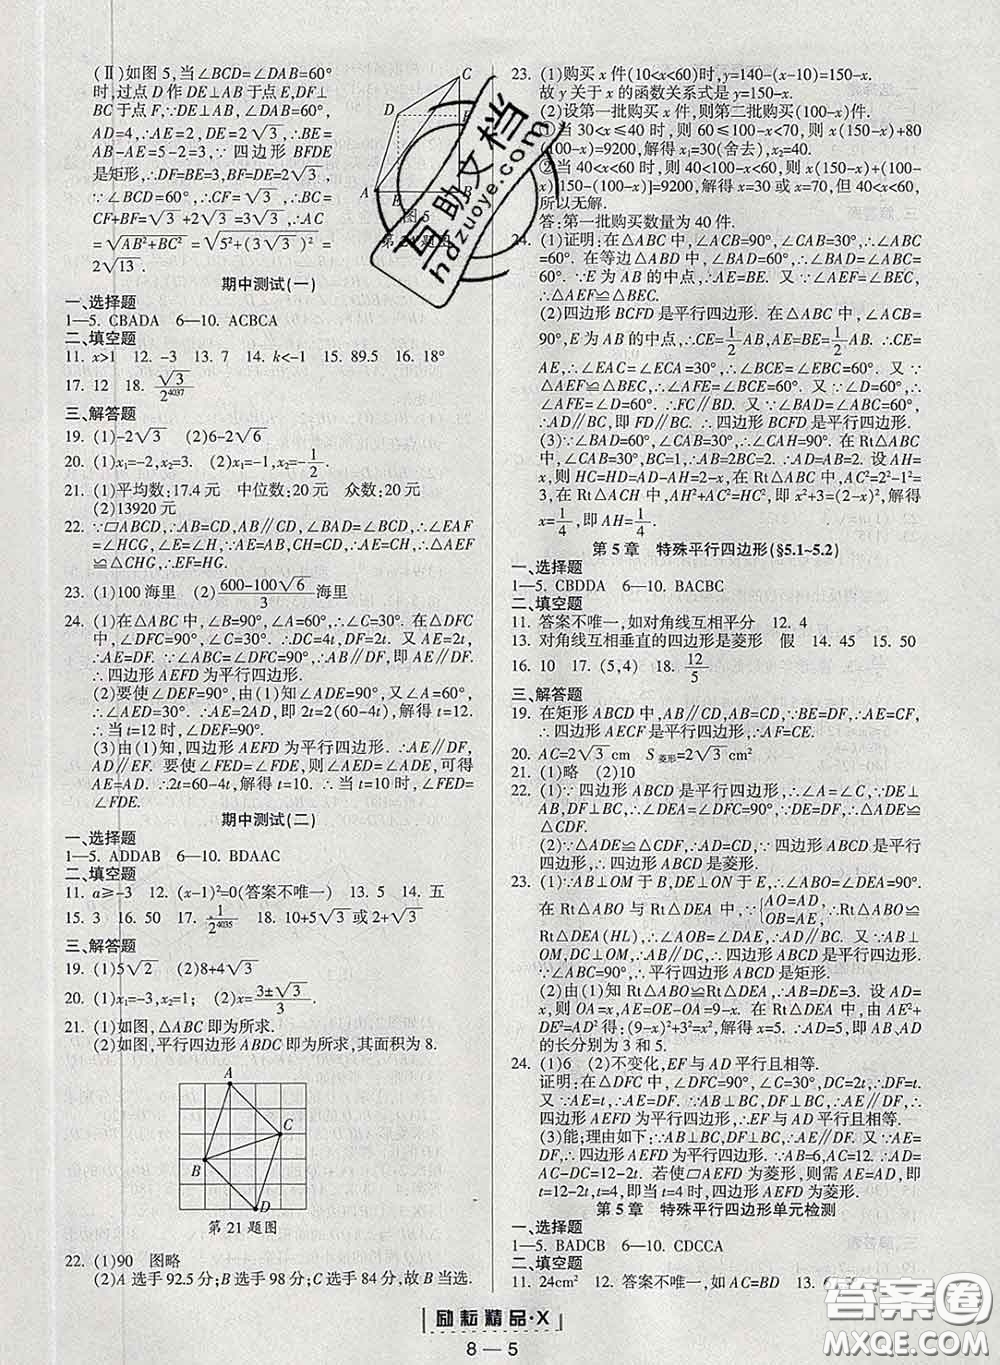 (Ⅱ)如图 5,当∠BCD=∠DAB=60°
时,过点 D 作 DE⊥AB 于点 E,DF⊥
BC 于点 F,∵DE⊥AB,∠DAB=60°,
AD=4,∴AE=2,DE=2√3,∴BE=
AB-AE=5-2=3,∵四边形 BFDE
是矩形,∴DF=BE=3,BF=DE=2√3,
∵∠BCD=60°,∴CF=√3,∴BC=
CF+BF=√3+2√3=3√3,∴AC
=√(AB²+BC²)=√(5²+(3√3)²)=
2√13.
C
D
E
A B
图 5
期中测试(一)
一、选择题
1—5. CBADA 6—10. ACBCA
二、填空题
11. x>1 12. -3 13. 7 14. k<-1 15. 89.5 16. 18°
17. 12 18. √3/2⁴⁰³⁷
三、解答题
19. (1)-2√3 (2)6-2√6
20. (1)x₁=-2,x₂=3. (2)x₁=-1,x₂=-1/2.
21. (1)平均数:17.4 元 中位数:20 元 众数:20 元
(2)13920 元
22. ∵▱ABCD,∴AB=CD,AB∥CD,∠BAD=∠BCD,∴∠EAF
=∠HCG,∠E=∠H,又∵AE=CH,∴△AEF≌△CHG
(ASA),∴EF=HG.
23. (1)100 海里 (2)(600-100√6)/3海里
24. (1)在△ABC 中,∠B=90°,∠A=60°,∴∠C=30°,在△DFC
中,∠DFC=90°,∠C=30°. ∴DC=4t,DF=2t,又 AE=2t,
∴AE=DF. ∵∠ABC=∠DFC=90°,∴AB∥DF,即 AE∥DF,
∴四边形 AEFD 为平行四边形.
(2)要使∠DEF=90°,由(1)知∠ADE=90°,又∠A=60°,
∴∠AED=30°. ∴AE=2AD,即 2t=2(60-4t),解得 t=12.
∴当 t=12 时,∠DEF=90°.
(3)由(1)知,四边形 AEFD 为平行四边形. ∴AE∥DF,
AD∥EF. ∴要使∠FED=∠FDE=∠AED=∠ADE,可得
AE=AD. ∴2t=60-4t,解得 t=10. ∴当 t=10 时,∠FED=
∠FDE.
期中测试(二)
一、选择题
1—5. ADDAB 6—10. BDAAC
二、填空题
11. a≥-3 12. (x-1)²=0(答案不唯一) 13. 5 14. 五
15. 3 16. 50 17. 1/2⁴⁰³⁵ 18. 10+5√3或 2+√3
三、解答题
19. (1)5√2 (2)8+4√3
20. (1)x₁=-3,x₂=1; (2)x=(3±√3)/3.
21. (1)如图,△ABC 即为所求.
(2)如图,平行四边形 ABDC 即为所求,其面积为 8.
A
C
B
D
第 21 题图
22. (1)90 图略
(2)A 选手 92.5 分;B 选手 98 分;C 选手 84 分,故 B 当选.
23. (1)购买 x 件(10<x<60)时,y=140-(x-10)=150-x.
故 y 关于 x 的函数关系式是 y=150-x.
(2)设第一批购买 x 件,则第二批购买(100-x)件.
①当 30<x≤40 时,则 60≤100-x<70,则 x(150-x)+80
(100-x)=9200,解得 x₁=30(舍去),x₂=40.
②当 40<x<60 时,则 40<100-x<60,则 x(150-x)+(100-
x)[150-(100-x)]=9200,解得 x=30 或 x=70,但 40<x<60,
所以无解.
答:第一批购买数量为 40 件.
24. (1)证明:在△ABC 中,∠ACB=90°,∠CAB=30°,∴∠ABC
=60°. 在等边△ABD 中,∠BAD=60°,∴∠BAD=∠ABC
=60°. ∵E 为 AB 的中点,∴AE=BE. 又∵∠AEF=∠BEC,
∴△AEF≌△BEC.
(2)四边形 BCFD 是平行四边形. 在△ABC 中,∵∠ACB=
90°,E 为 AB 的中点,∴CE=1/2AB,AE=1/2AB,∴CE=
AE,∴∠EAC=∠ECA=30°,∴∠BCE=60°. 又∵
△AEF≌△BEC,∴∠AFE=∠BCE=60°. 又∵∠D=60°,
∴∠AFE=∠D=60°. ∴FC∥BD. 又∵∠BAD=∠ABC=60°,
∴AD∥BC,即 FD∥BC. ∴四边形 BCFD 是平行四边形.
(3)∵∠BAD=60°,∠CAB=30°,∴∠CAH=90°. 在 Rt△ABC
中,∠CAB=30°,BC=1,∴AB=2BC=2. ∴AD=AB=2. 设
AH=x,则 HC=HD=AD-AH=2-x,在 Rt△ABC 中,AC²=2²-1²=
3,在 Rt△ACH 中,AH²+AC²=HC²,即 x²+3=(2-x)²,解得
x=1/4,即 AH=1/4.
第 5 章 特殊平行四边形(§5.1~5.2)
一、选择题
1—5. CBDDA 6—10. BACBC
二、填空题
11. 答案不唯一,如对角线互相平分 12. 4
13. 对角线互相垂直的四边形是菱形 假 14. 45 15. 50
16. 10 17. (5,4) 18. 12/5
三、解答题
19. 在矩形 ABCD 中,AB∥CD,AB=CD,∵BE=DF,∴AE=CF,
∴四边形 AECF 是平行四边形. ∴AF=CE.
20. AC=2√3 cm S菱形=2√3 cm²
21. (1)略 (2)10
22. (1)∵四边形 ABCD 是平行四边形,∴∠A=∠C,∵DE⊥
AB,DF⊥BC,∴∠DEA=∠DFC=90°,∵DE=DF,∴△ADE≌
△CDF.
(2)∵△ADE≌△CDF,∴AD=CD,∵四边形 ABCD 是平行
四边形,∴四边形 ABCD 是菱形.
23. (1)∵AB⊥OM 于 B,DE⊥ON 于 E,∴∠ABO=∠DEA=90°.
在 Rt△ABO 与 Rt△DEA 中,∵{AO=AD, OB=AE, ∴Rt△ABO≌
Rt△DEA(HL),∴∠AOB=∠DAE,∴AD∥BC. 又∵AB⊥
OM,DC⊥OM,∴AB∥DC,∴四边形 ABCD 是平行四边形,
∵∠ABC=90°,∴四边形 ABCD 是矩形.
(2)由(1)知 Rt△ABO≌Rt△DEA,∴AB=DE=3. 设 AD=
x,则 OA=x,AE=OE-OA=9-x. 在 Rt△DEA 中,由 AE²+
DE²=AD²得:(9-x)²+3²=x²,解得 x=5. ∴AD=5. 即 AB、AD
的长分别为 3 和 5.
24. (1)6 (2)不变化,EF 与 AD 平行且相等.
证明:在△DFC 中,∠DFC=90°,∠C=30°,DC=2t,∴DF=t.
又∵AE=t,∴AE=DF. ∵AB⊥BC,DF⊥BC,∴AE∥DF. ∴
四边形 AEFD 为平行四边形,∴EF 与 AD 平行且相等.
(3)能;理由如下:∵AB⊥BC,DF⊥BC,∴AE∥DF. 又∵AE=
DF,∴四边形 AEFD 为平行四边形. ∵AB=6,AC=12. ∴AD=
AC-DC=12-2t. 若使▱AEFD 为菱形,则需 AE=AD,即
t=12-2t,t=4. 即当 t=4 时,四边形 AEFD 为菱形.
第 5 章 特殊平行四边形单元检测
一、选择题
1—5. BADCB 6—10. CDCCA
二、填空题
11. 24cm² 12. 答案不唯一,如 AC=BD 13.
励耘精品·X
8—5
互助文档
hdzuoye.com
答案圈
MXQE.COM